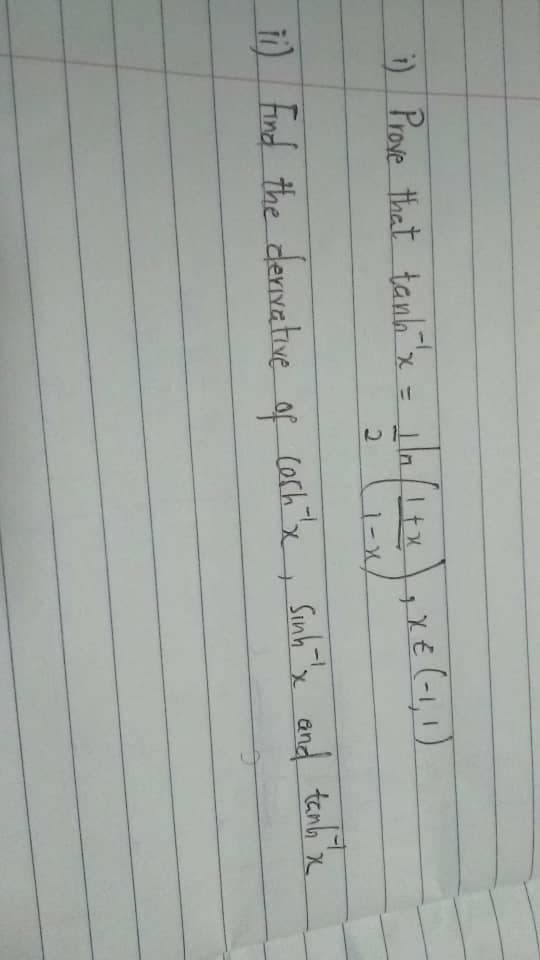 i) Prove that tanh⁻¹x = 1/2 ln(1+x/1-x), x ∈ (-1, 1)
ii) Find the derivative of cosh⁻¹x, sinh⁻¹x and tanh⁻¹x